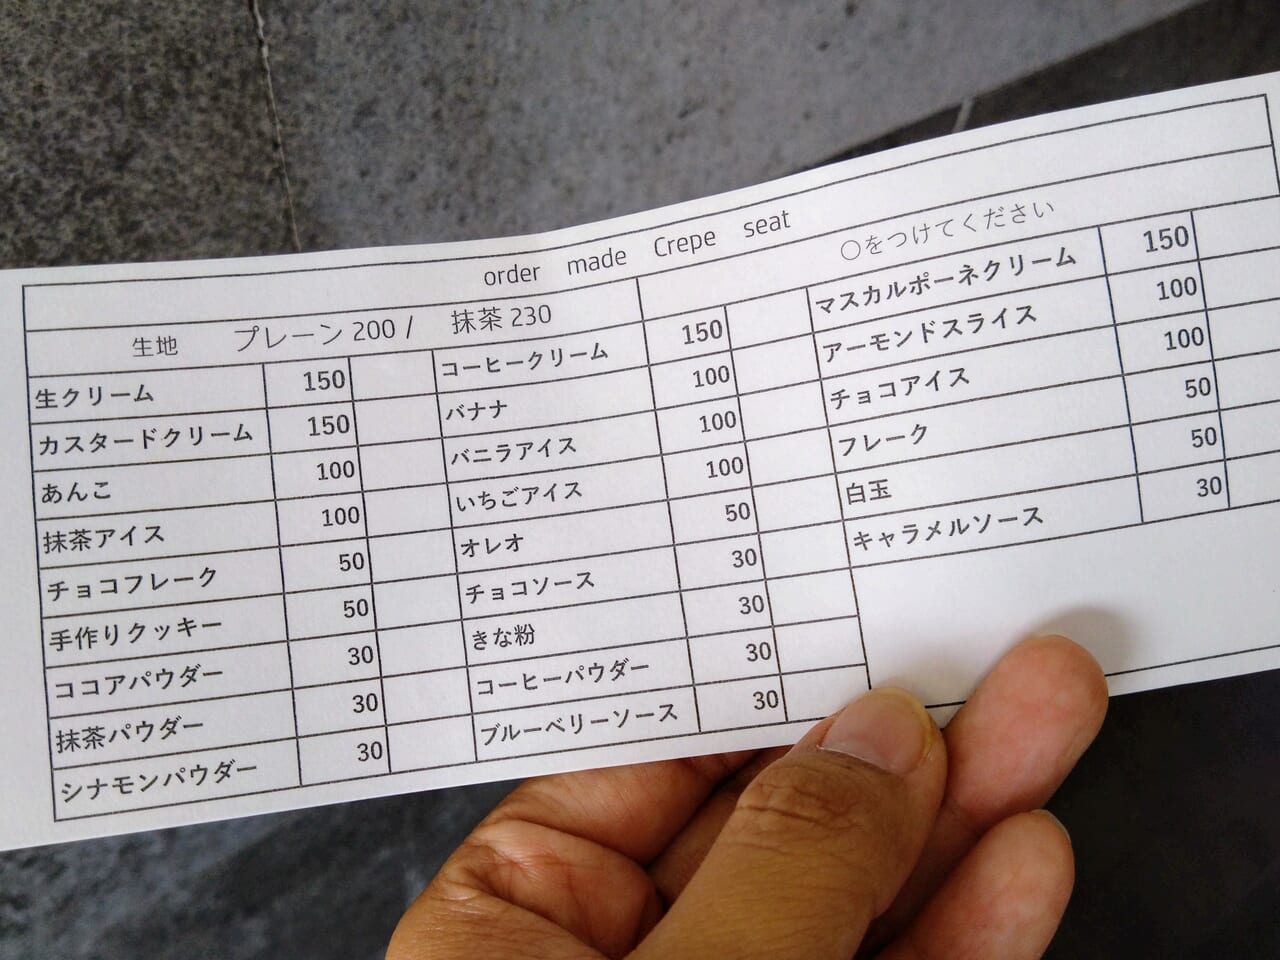 order made Crepe seat
生地 プレーン 200 / 抹茶 230
○をつけてください
生クリーム 150
カスタードクリーム 150
あんこ 100
抹茶アイス 100
チョコフレーク 50
手作りクッキー 50
ココアパウダー 30
抹茶パウダー 30
シナモンパウダー 30
コーヒークリーム 150
バナナ 100
バニラアイス 100
いちごアイス 100
オレオ 50
チョコソース 30
きな粉 30
コーヒーパウダー 30
ブルーベリーソース 30
マスカルポーネクリーム 150
アーモンドスライス 100
チョコアイス 100
フレーク 50
白玉 50
キャラメルソース 30